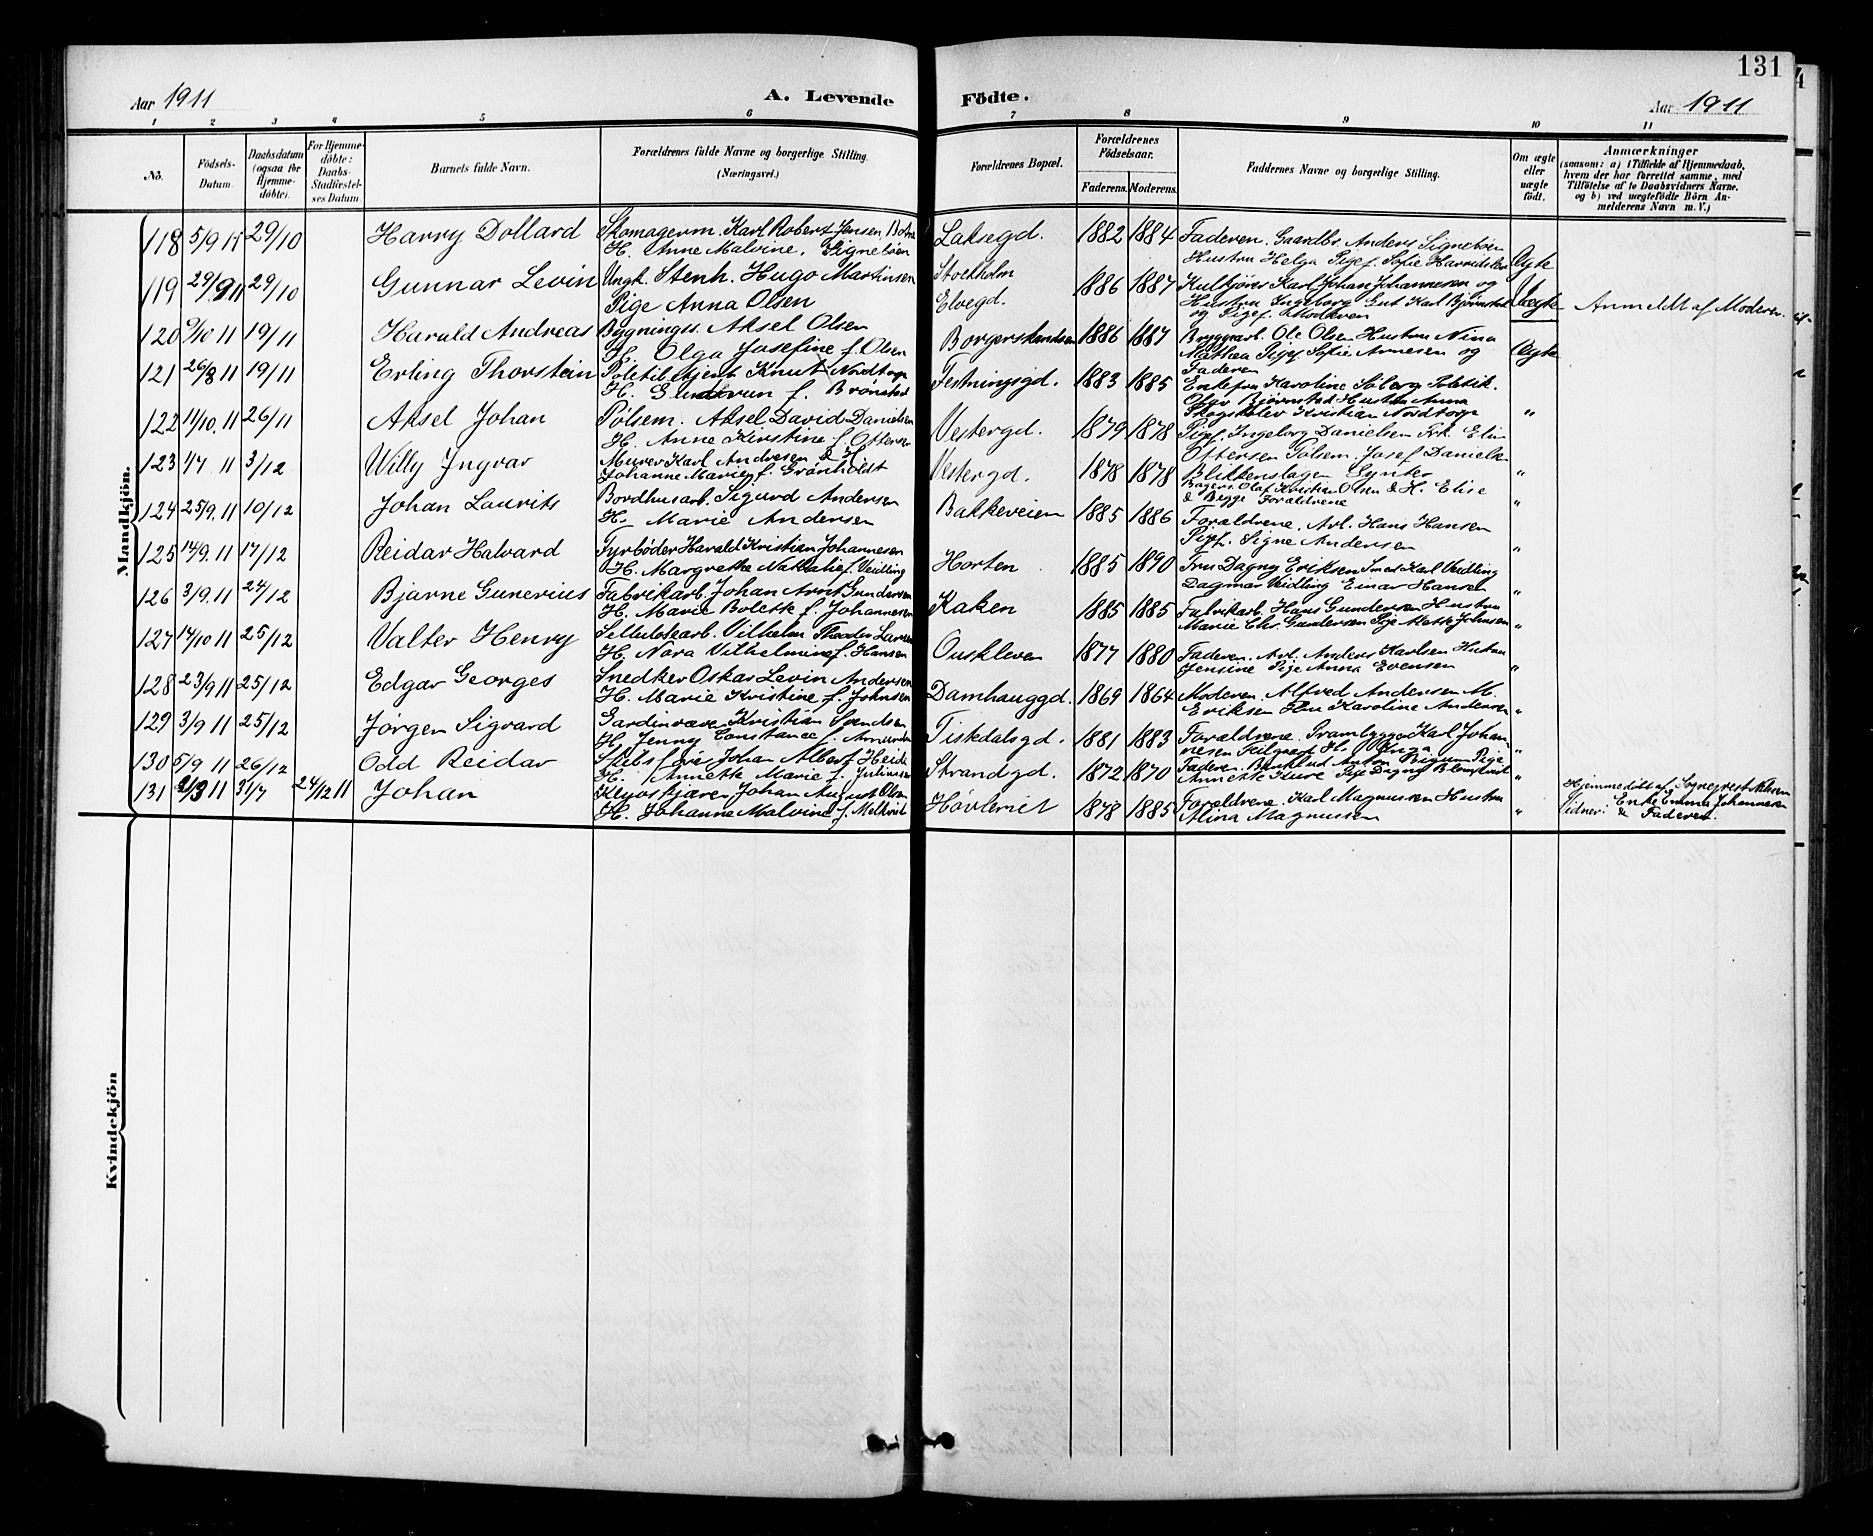 131
Aar 1911 A. Levende Födte. Aar 1911
1 2 3 4 5 6 7 8 9 10 11
No. Födsels-Datum. Daabsdatum (ogsaa for Hjemmedöbte). For Hjemmedöbte: Daabs-Stadfæstelses Datum. Barnets fulde Navn. Forældrenes fulde Navne og borgerlige Stilling. (Næringsvei.) Forældrenes Bopæl. Forældrenes Födselsaar. Faderens. Moderens. Faddernes Navne og borgerlige Stilling. Om ægte eller uægte födt. Anmærkninger (saasom: a) i Tilfælde af Hjemmedaab, hvem der har forrettet samme, med Tilföielse af to Daabsvidners Navne. og b) ved uægtefödte Börn Anmelderens Navn m. V.)
Mandkjön.
118 5/9 11 29/10 Harry Dollard Skomagerm. Karl Robert Jensen, Laksegd. 1882 1884 Faderen. Gaardbr. Anders Signebøen
H. Anne Malvine. Signebøen Hustru Helga Pigef. Sofie Ægte
119 29/9 11 29/10 Gunnar Levin Ungk. Stenh. Hugo Martinsen Stockholm 1886 1887 Kulkjører Karl Johan Johannesen og
Pige Anna Olsen Elvegd. Hustru Ingeborg Gut Karl Bjørnstad og Pigef. Moderen Uægte Anmeldt af Moderen.
120 /10 11 19/11 Harald Andreas Bygningss. Aksel Olsen 1886 1887 Bryggarb. Ole Olsen Hustru Nina
H. Olga Josefine f. Olsen Mathea Pigef Sofie Arnesen og Faderen Ægte
121 26/8 11 19/11 Erling Thorstein Politibetjent Knut Nordtorp Festningsgd. 1883 1885 Enkefru Karoline Politik.
H. Gudrun f. Brønstad Olav Bjørnstad Hustru Anna
122 11/10. 11 26/11 Aksel Johan Pølsem. Aksel David Danielsen Vestergd. 1879 1878 Kristian Nordtorp "
H. Anne Kirstine f. Ottersen Pigef. Ingeborg Danielsen Frk. Elin
123 4/7 11 3/12 Willy Ingvar Murer Karl Andresen & H. Vestergd. 1878 1878 Ottersen Pølsem. Josef Danielsen
Johanne Marie f. Grønholdt Blikkenslager "
124 25/9. 11 10/12 Johan Laurits Bordhusarb. Sigurd Andersen Bakkeveien 1885 1886 Olaf Kristian Olsen & H. Elise
H. Marie Andersen & Begge Forældrene "
125 14/9. 11 17/12 Reidar Halvard Fyrbøder Harald Kristian Johannesen Horten 1885 1890 Forældrene. Arb. Hans Hansen
H. Margrethe Nathalie f. Veidling Pigef. Signe Andersen "
126 3/9. 11 24/12 Bjarne Gunerius Fabrikarb. Johan Arnt Gundersen Kaken 1885 1885 Fru Dagny Eriksen Karl Veidling
H. Marie Bolette f. Johannesen Dagmar Veidling Einar Hansen "
127 14/10 11 25/12 Valter Henry Sellulosearb. Vilhelm Theodor Larsen Ouskleven 1877 1880 Fabrikarb. Hans Gundersen Hustru
H. Nora Vilhelmine f. Hansen Marie Chr. Gundersen Pige Mette Johnsen "
128 23/9 11 25/12 Edgar Georges Snedker Oskar Levin Andersen Damhauggd. 1869 1864 Faderen. Arb. Anders Karlsen Hustru
H. Marie Kristine f. Johnsen Jensine Pige Anna Evensen "
129 3/9 11 25/12 Jørgen Sigvard Gardinvæver Kristian Svendsen Tistedalsgd. 1881 1883 Moderen. Alfred Andersen M.
H. Jenny Constance f. Amundsen Eriksen Karoline Andersen "
130 5/9 11 26/12 Odd Reidar Skibsfører Johan Albert Heide Strandgd. 1872 1870 Forældrene. Prambygger Karl Johannesen
H. Annette Marie f. Juliussen Faderen. Anton Pige Annette Pige Dagny "
131 /3 11 31/7 24/12 11 Johan Johan August Olsen Høvleriet 1878 1885 Forældrene. Karl Magnussen Hustru
H. Johanne Malvine f. Melkvist Alina Magnussen " Hjemmedøbt af Sogneprest Nilssen
Vidner: Enke Emma Johannesen
& Faderen.
Kvindekjön